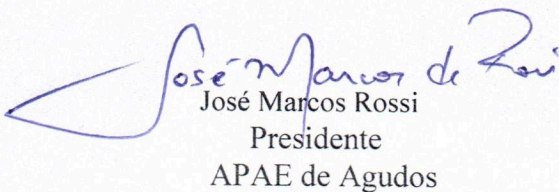 José Marcos de Rossi
José Marcos Rossi
Presidente
APAE de Agudos